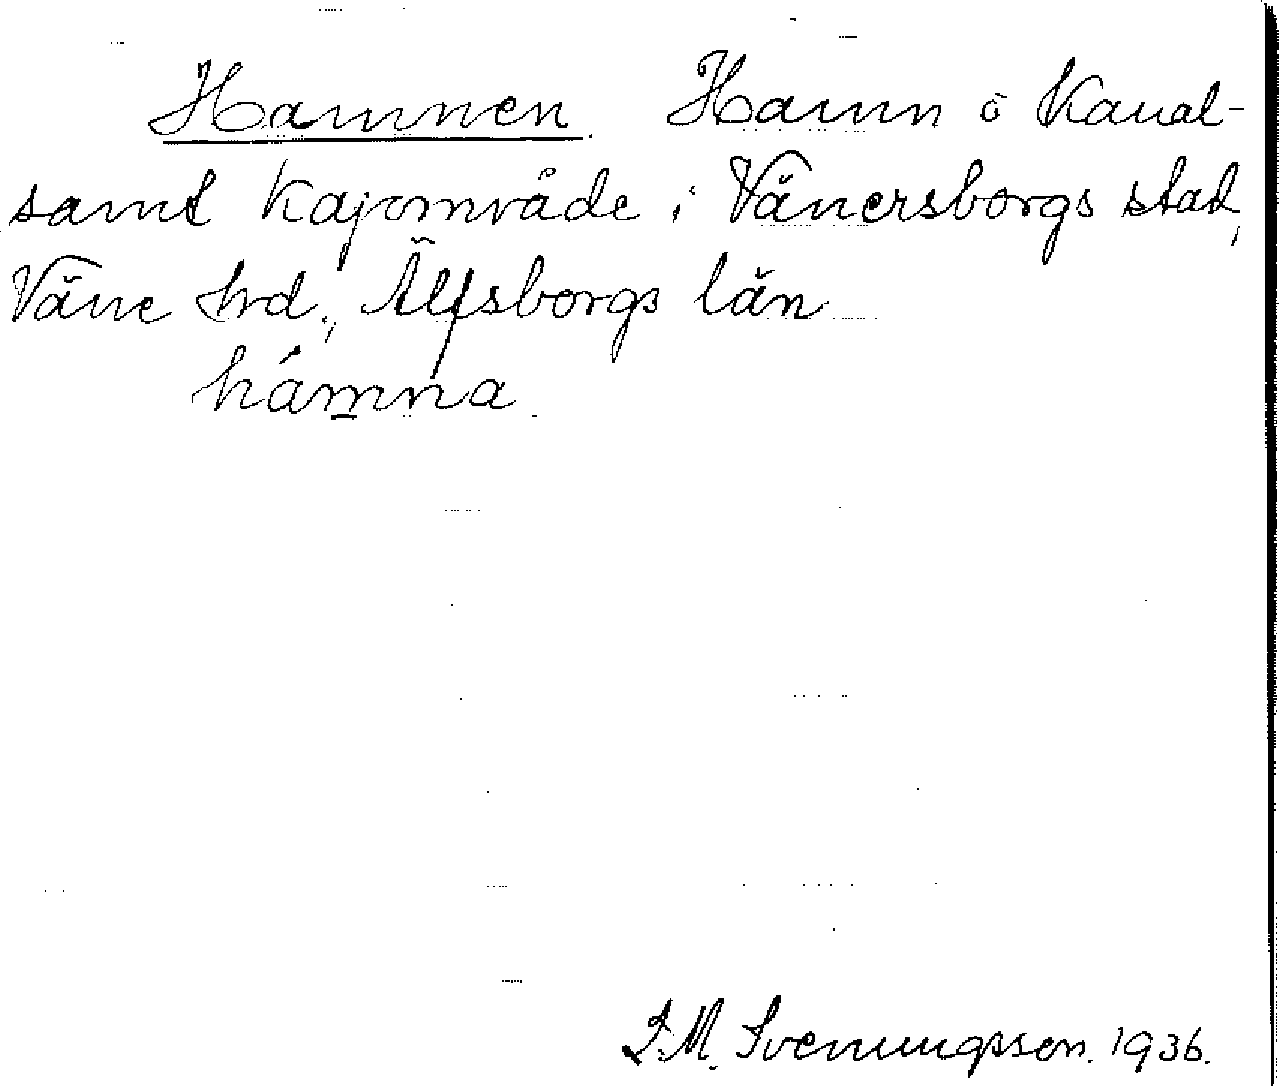 Hamnen. Hamn o Kanal-
samt Kajområde i Vänersborgs stad,
Väne hrd., Älfsborgs län
hámna.
J.M. Svenungsson. 1936.